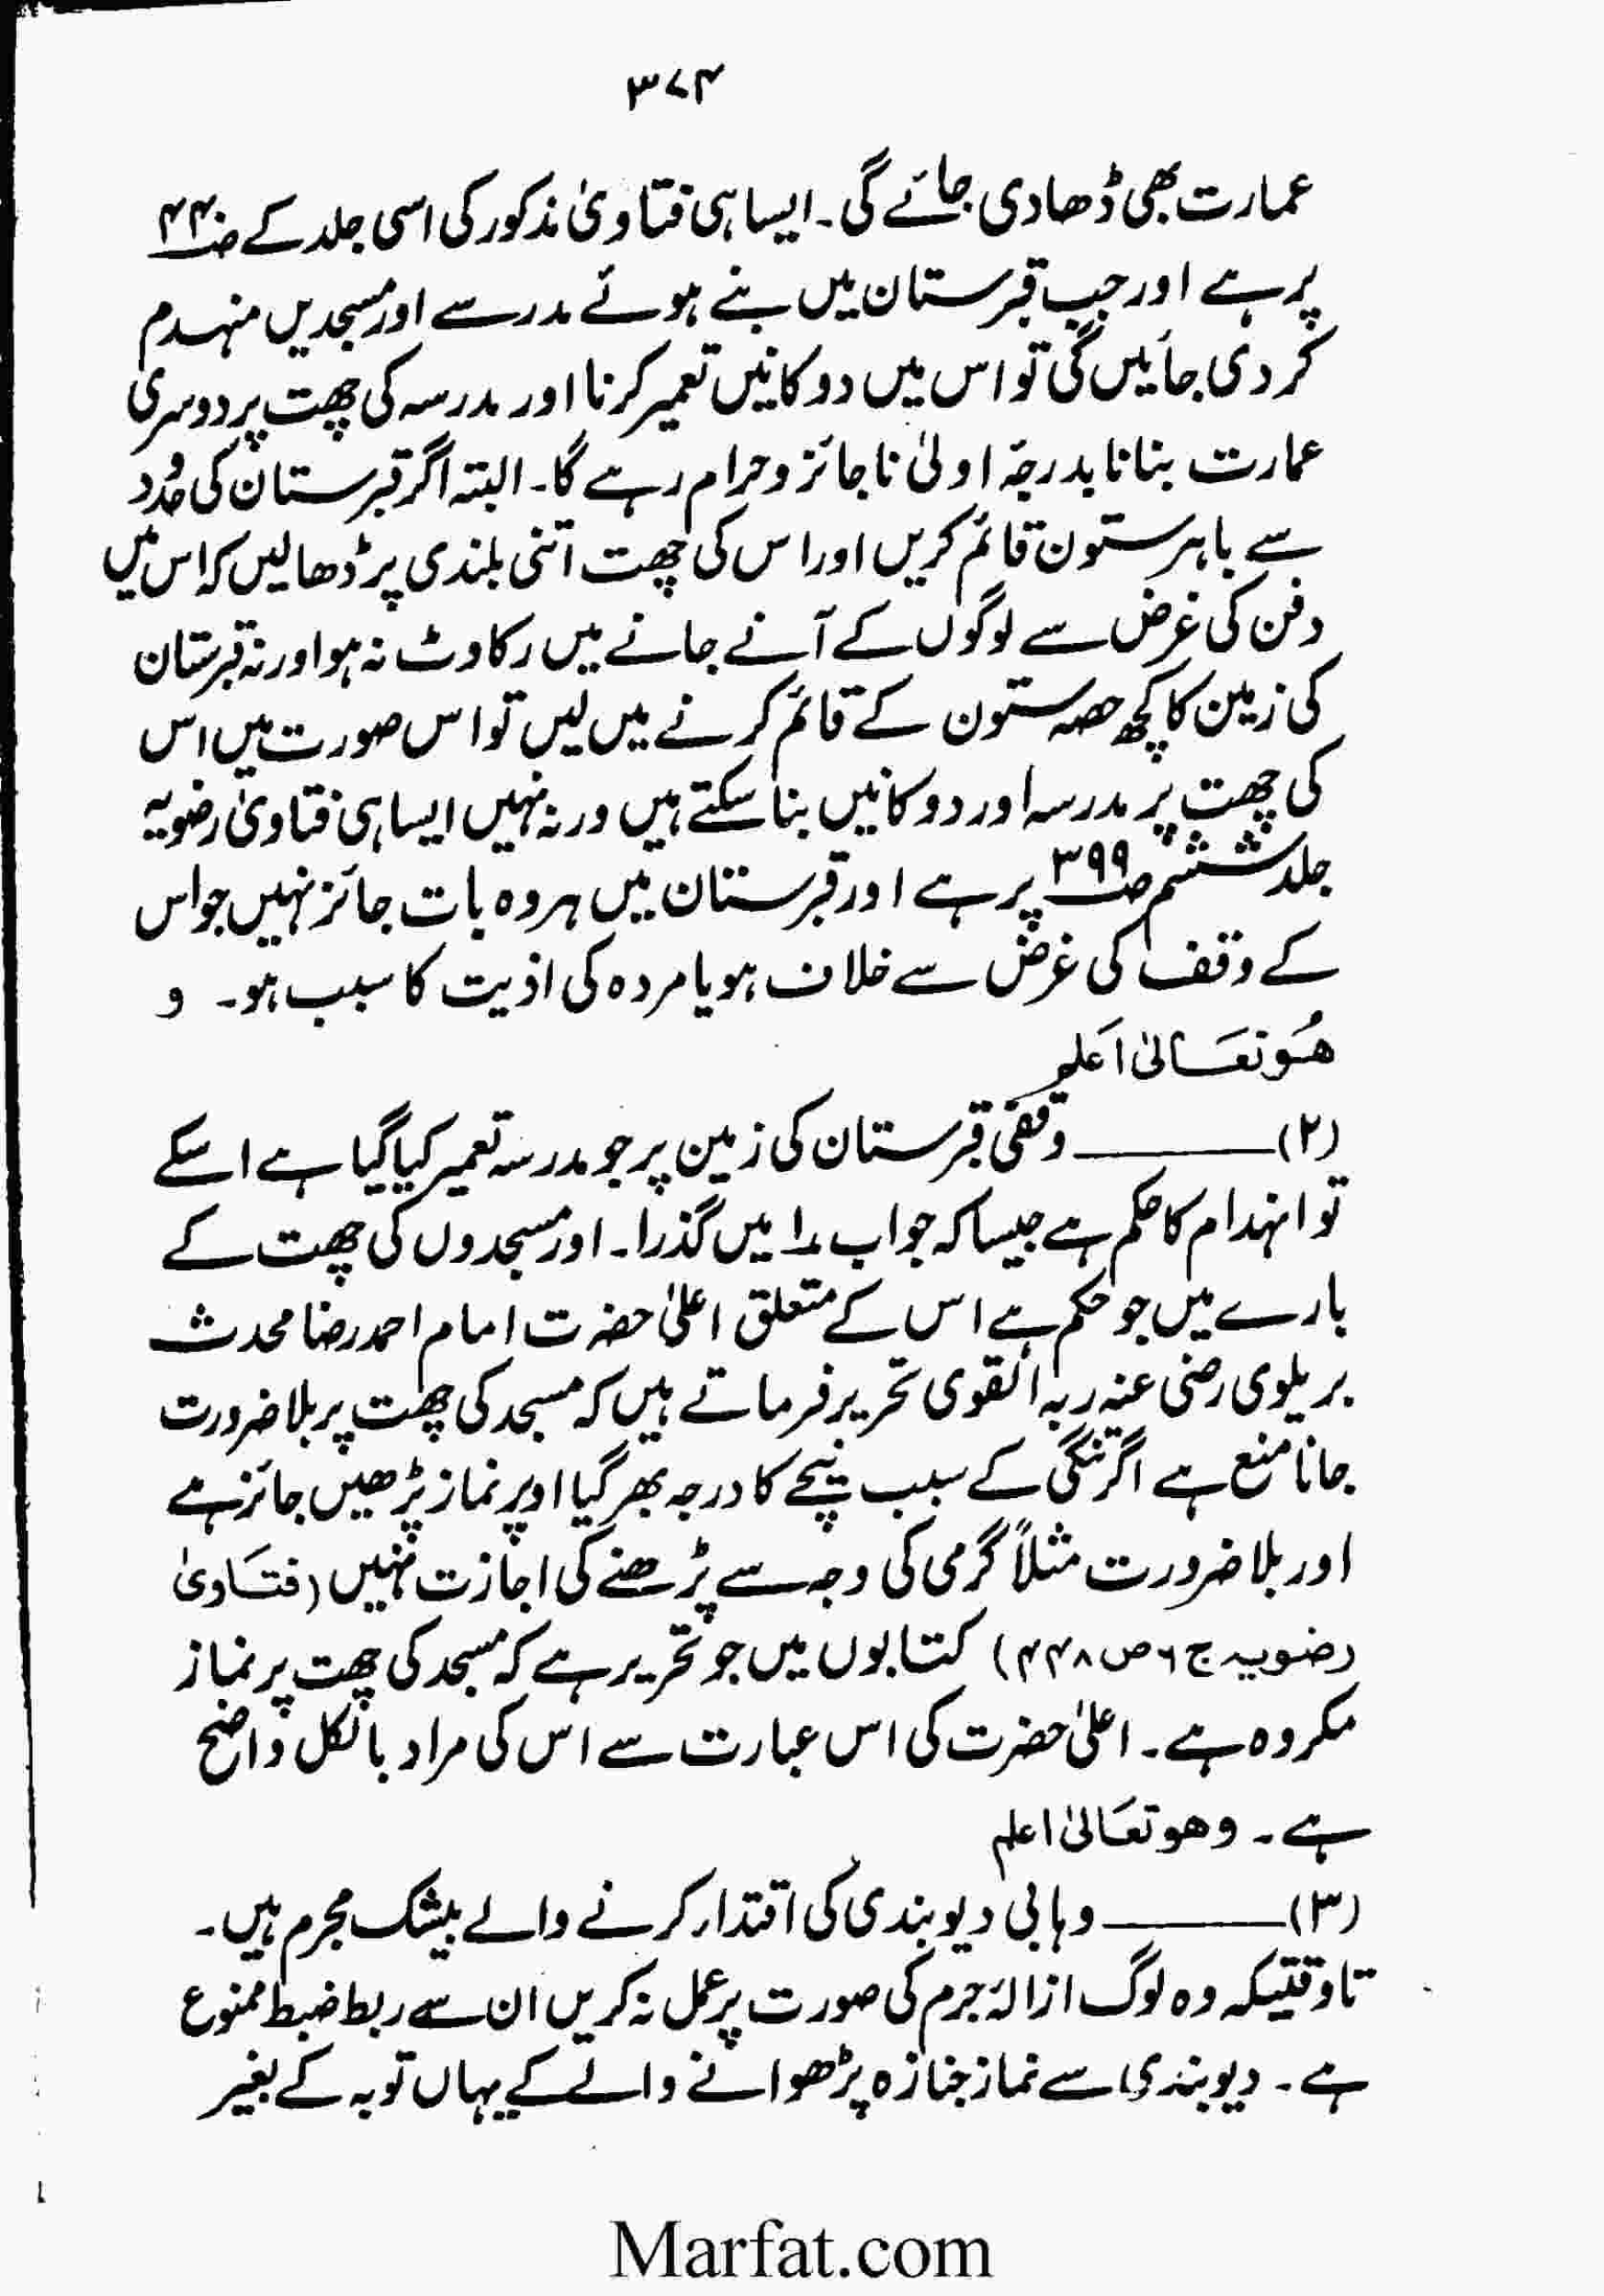 ۳۷۴
عمارت بھی ڈھادی جائے گی۔ ایسا ہی فتاویٰ مذکور کی اسی جلد کے صـ۴۴۰
پر ہے اور جب قبرستان میں بنے ہوئے مدرسے اور مسجدیں منہدم
کر دی جائیں گی تو اس میں دوکانیں تعمیر کرنا اور مدرسہ کی چھت پر دوسری
عمارت بنانا بدرجۂ اولیٰ ناجائز و حرام رہے گا۔ البتہ اگر قبرستان کی حدود
سے باہر ستون قائم کریں اور اس کی چھت اتنی بلندی پر ڈھالیں کہ اس میں
دفن کی غرض سے لوگوں کے آنے جانے میں رکاوٹ نہ ہو اور نہ قبرستان
کی زمین کا کچھ حصہ ستون کے قائم کرنے میں لیں تو اس صورت میں اس
کی چھت پر مدرسہ اور دوکانیں بنا سکتے ہیں ورنہ نہیں ایسا ہی فتاویٰ رضویہ
جلد ششم صـ۳۹۹ پر ہے اور قبرستان میں ہر وہ بات جائز نہیں جو اس
کے وقف کی غرض سے خلاف ہو یا مردہ کی اذیت کا سبب ہو۔ و
ھُوَ تعَالیٰ اَعلم
(۲)ــــــــــــ وقفی قبرستان کی زمین پر جو مدرسہ تعمیر کیا گیا ہے اسکے
تو انہدام کا حکم ہے جیسا کہ جواب ۱ میں گذرا۔ اور مسجدوں کی چھت کے
بارے میں جو حکم ہے اس کے متعلق اعلیٰ حضرت امام احمد رضا محدث
بریلوی رضی عنہ ربہ القوی تحریر فرماتے ہیں کہ مسجد کی چھت پر بلا ضرورت
جانا منع ہے اگر تنگی کے سبب نیچے کا درجہ بھر گیا اوپر نماز پڑھیں جائز ہے
اور بلا ضرورت مثلاً گرمی کی وجہ سے پڑھنے کی اجازت نہیں (فتَاویٰ
رضویہ ج ۶ ص ۴۴۸) کتابوں میں جو تحریر ہے کہ مسجد کی چھت پر نماز
مکروہ ہے۔ اعلیٰ حضرت کی اس عبارت سے اس کی مراد بالکل واضح
ہے۔ وھو تعَالیٰ اعلم
(۳)ــــــــــــ وہابی دیوبندی کی اقتدار کرنے والے بیشک مجرم ہیں۔
تاوقتیکہ وہ لوگ ازالۂ جرم کی صورت پر عمل نہ کریں ان سے ربط ضبط ممنوع
ہے۔ دیوبندی سے نماز جنازہ پڑھوانے والے کے یہاں توبہ کے بغیر
Marfat.com